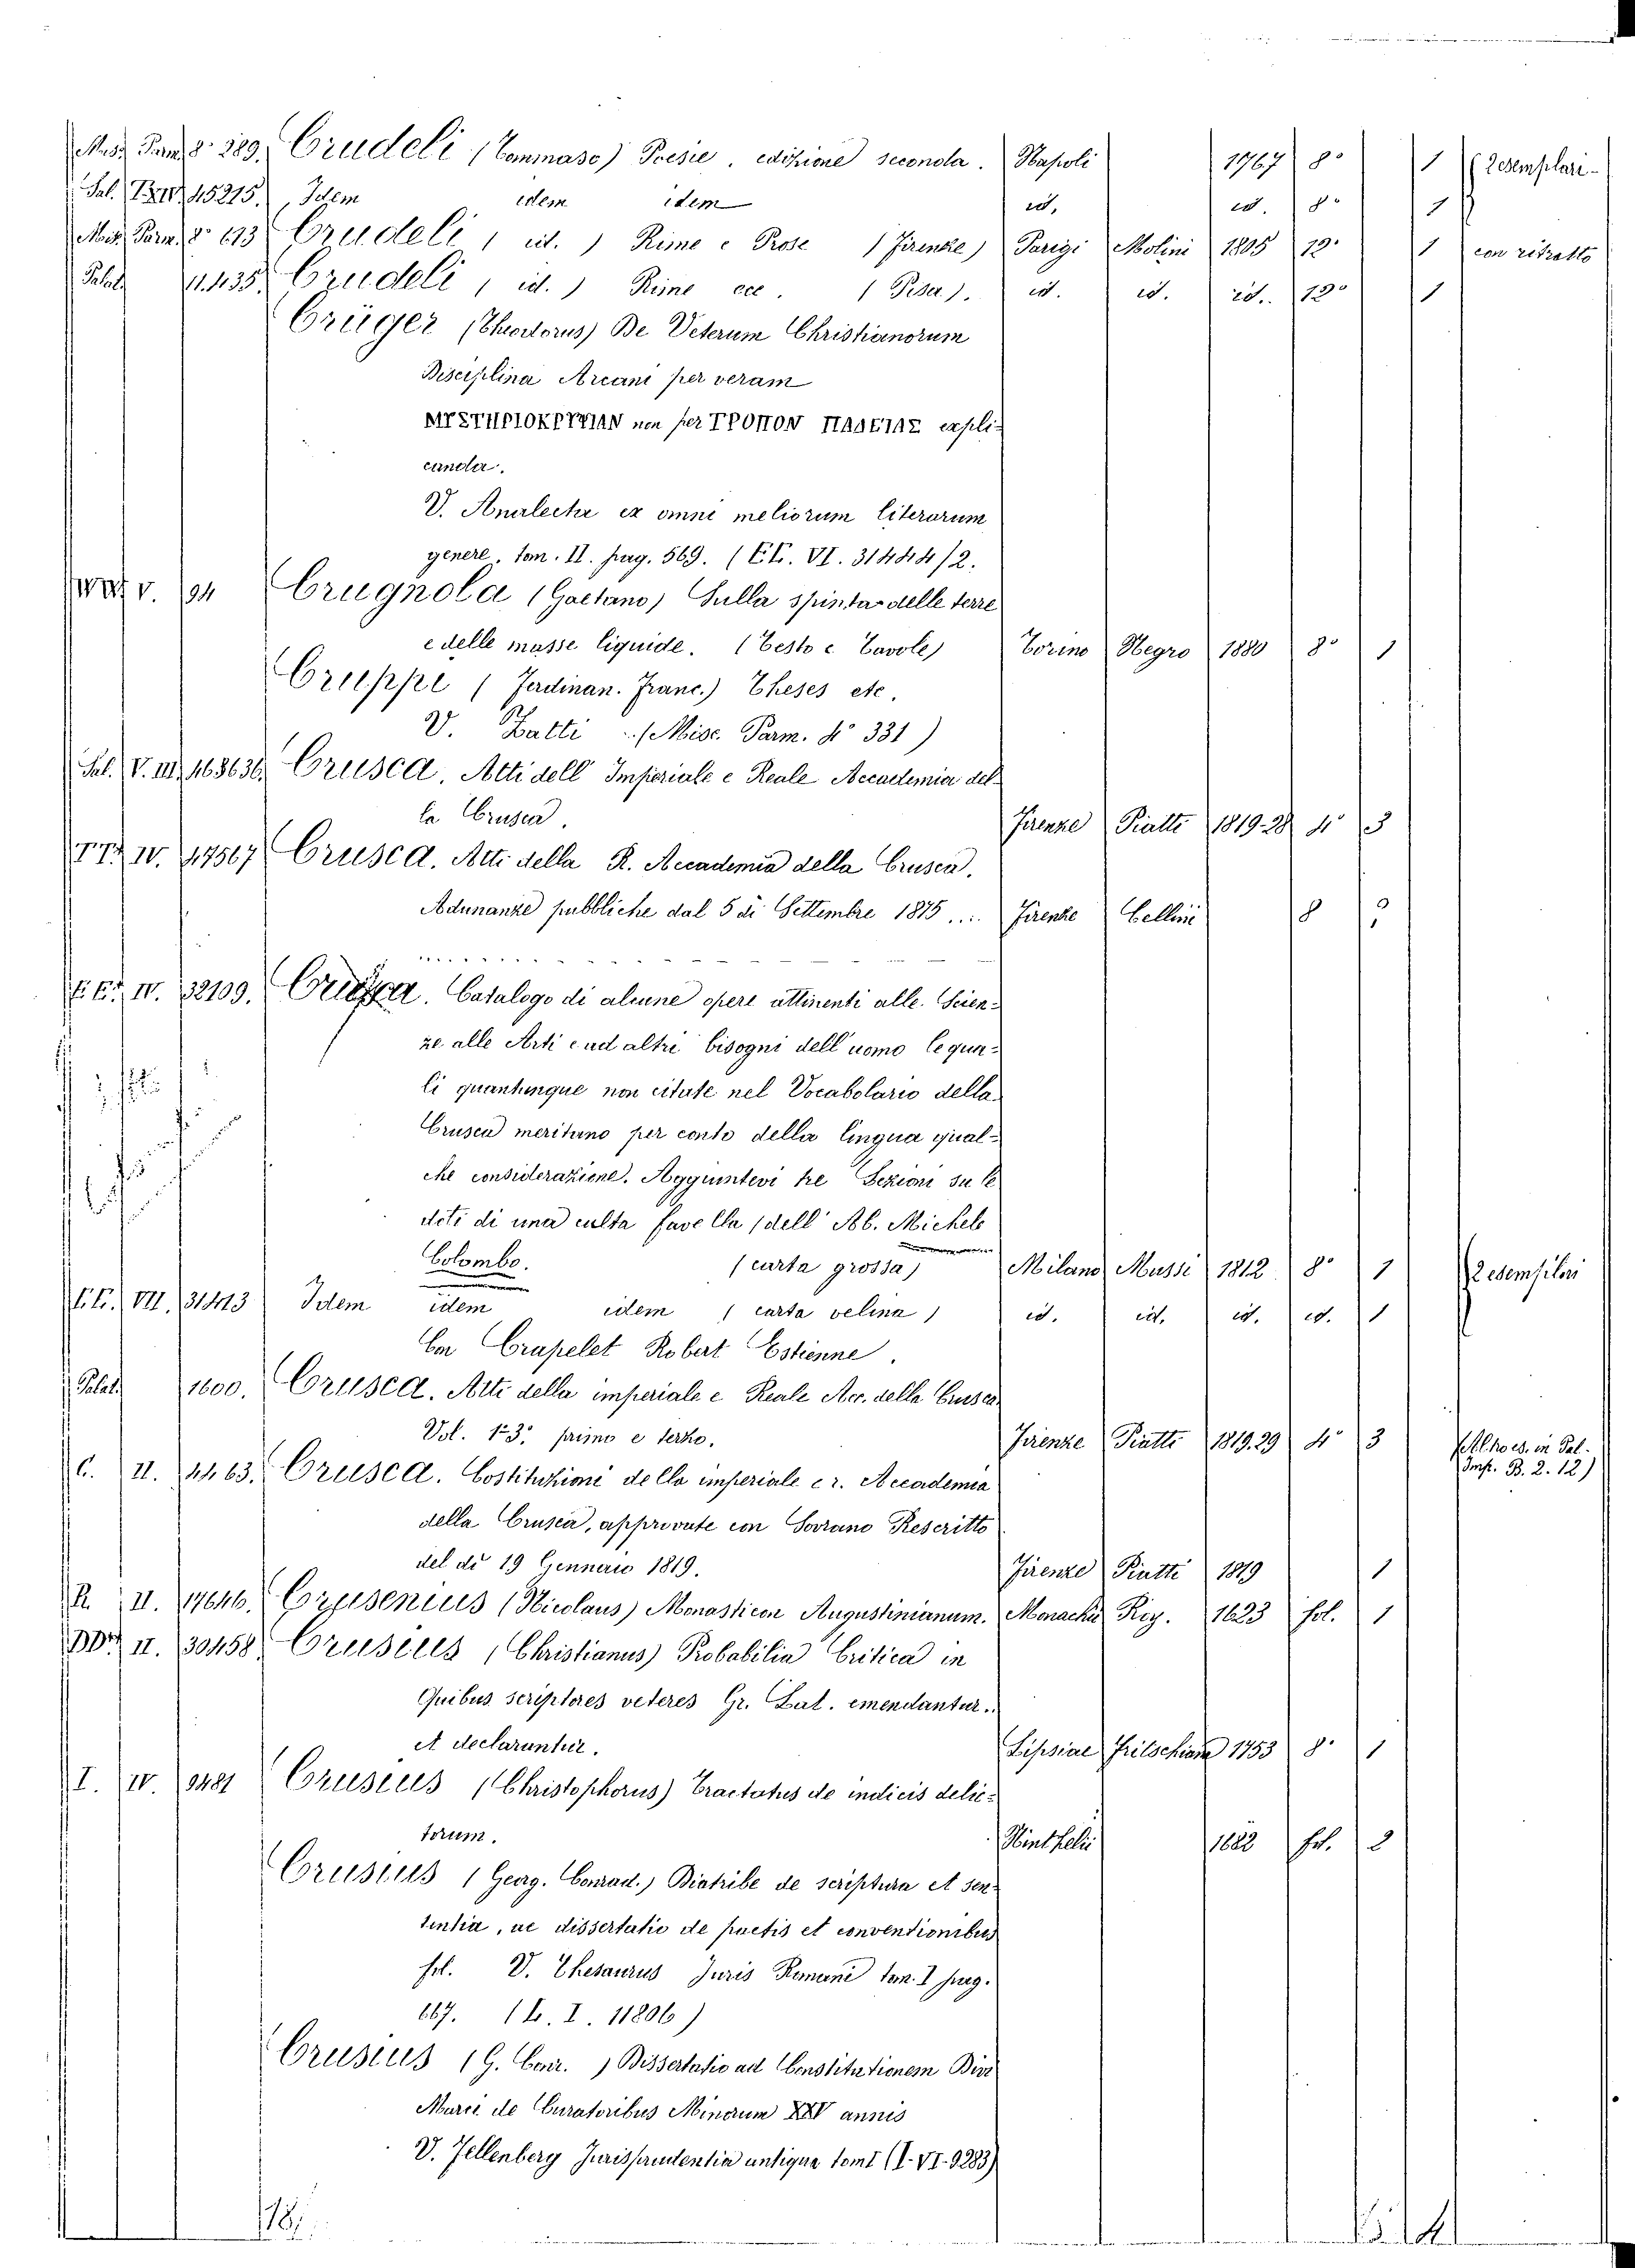 Misc. Parm. 8° 289. Crudeli (Tommaso) Poesie, edizione seconda. Napoli 1767 8° 1 (2 esemplari
Sal. 45215. Idem idem idem id. id. 8° 1
Misc. Parm. 8° 613 Crudeli (id.) Rime e Prose (Firenze) Parigi Molini 1805 12° 1 con ritratto
Palat. 11.435. Crudeli (id.) Rime ecc. (Pisa). id. id. id. 12° 1
Crüger (Theodorus) De Veterum Christianorum
Disciplina Arcani per veram
ΜΥΣΤΗΡΙΟΚΡΥΨΙΑΝ non per ΤΡΟΠΟΝ ΠΑΔΕΙΑΣ expli-
canda.
V. Analecta ex omni meliorum literarum
genere, tom. II. pag. 569. (EE. VI. 31444/2.
V. 94 Crugnola (Gaetano) Sulla spinta delle terre
e delle masse liquide. (Testo e Tavole) Torino Negro 1880 8° 1
Cruppi (Ferdinan. Franc.) Theses etc.
V. Zatti (Misc. Parm. 4° 331)
Sal. V. III. 168636. Crusca. Atti dell' Imperiale e Reale Accademia del-
la Crusca. Firenze Piatti 1819-28 4° 3
TT. IV. 47567 Crusca. Atti della R. Accademia della Crusca.
Adunanze pubbliche dal 5 di Settembre 1875 ... Firenze Cellini 8
EE. IV. 32109. Crusca. Catalogo di alcune opere attinenti alle Scien-
ze alle Arti e ad altri bisogni dell' uomo le qua-
li quantunque non citate nel Vocabolario della
Crusca meritano per conto della lingua qual-
che considerazione. Aggiuntevi tre Lezioni su le
doti di una culta favella (dell' Ab. Michele
Colombo. (carta grossa) Milano Mussi 1812 8° 1 (2 esemplari
EE. VII. 31413 Idem idem idem (carta velina) id. id. id. id. 1
Con Crapelet Robert Estienne.
Palat. 1600. Crusca. Atti della imperiale e Reale Acc. della Crusca
Vol. 1° 3° primo e terzo. Firenze Piatti 1819.29 4° 3 (Altro es. in Pal.
Imp. B. 2. 12)
C. II. 4463. Crusca. Costituzioni della imperiale e r. Accademia
della Crusca, approvate con Sovrano Rescritto
del dì 19 Gennaio 1819. Firenze Piatti 1819 1
R. II. 17646. Crusenius (Nicolaus) Monasticon Augustinianum. Monachii Rey. 1623 fol. 1
DD. II. 30458 Crusius (Christianus) Probabilia Critica in
Quibus scriptores veteres Gr. Lat. emendantur
et declarantur. Lipsiae Fritschiana 1753 8° 1
I. IV. 9481 Crusius (Christophorus) Tractatus de indiciis delic-
torum. Rinthelii 1682 fol. 2
Crusius (Georg. Conrad.) Diatribe de scriptura et sen-
tentia, ac dissertatio de pactis et conventionibus
fol. V. Thesaurus Juris Romani tom. I pag.
667. (L. I. 11806)
Crusius (G. Conr.) Dissertatio ad Constitutionem Divi
Marci de Curatoribus Minorum XXV annis
V. Fellenberg Jurisprudentia antiqua tom I (I. VI. 9283)
18.